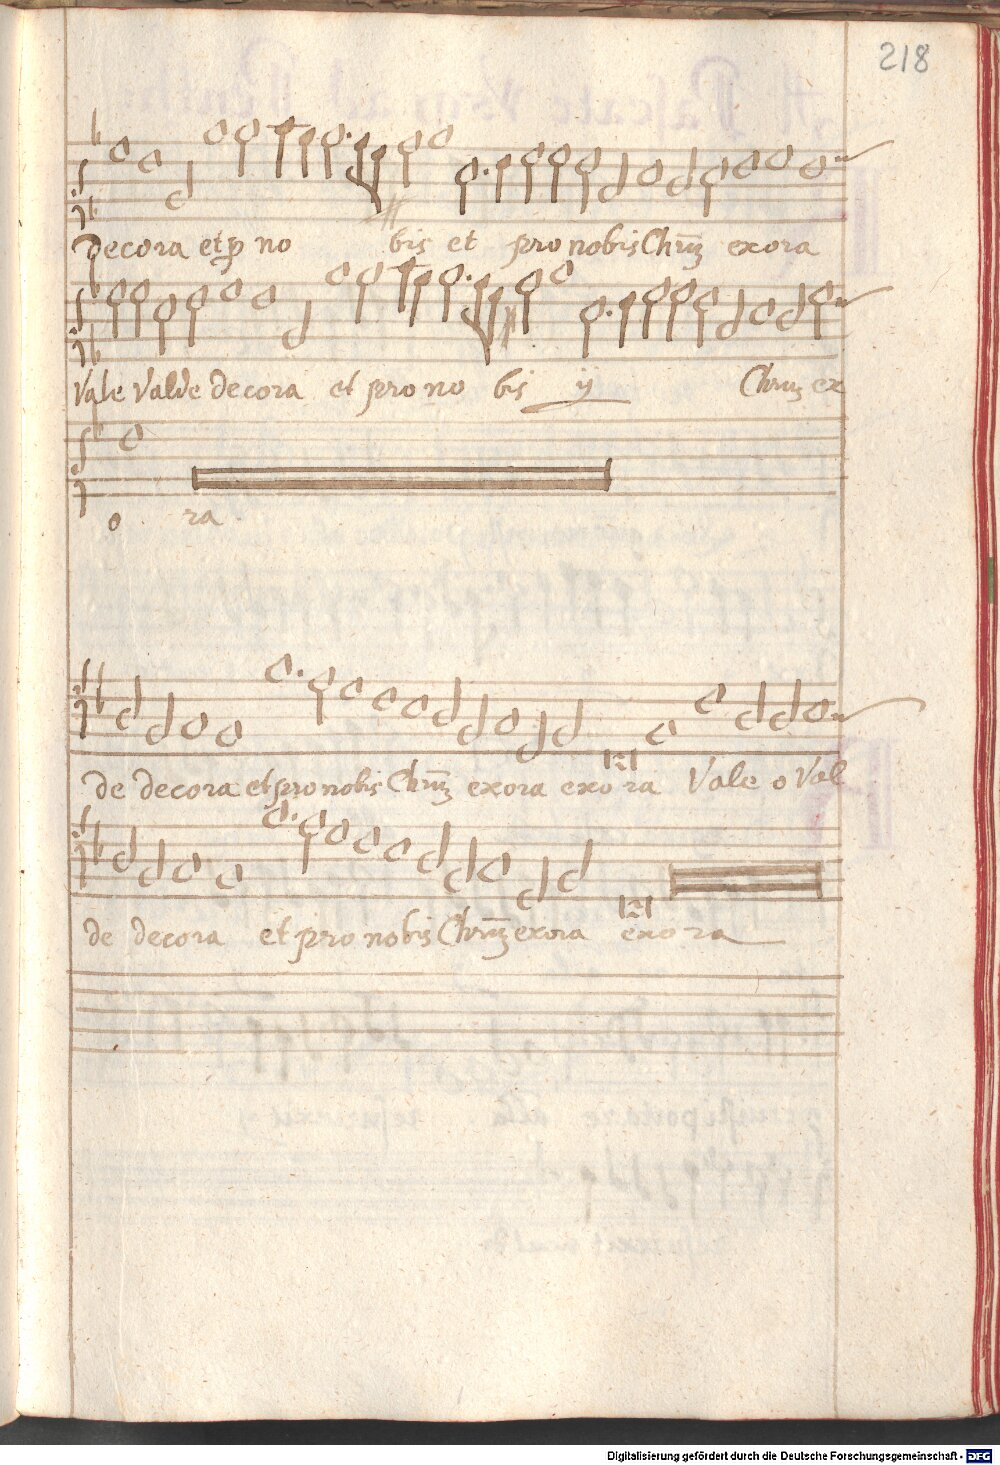 218
decora et p no bis et pro nobis Chrm exora
Vale Valde decora et pro no bis ij Chrm ex
o ra
de decora et pro nobis Chrm exora exo ra Vale o Val
de decora et pro nobis Chrm exora exo ra
Digitalisierung gefördert durch die Deutsche Forschungsgemeinschaft - DFG